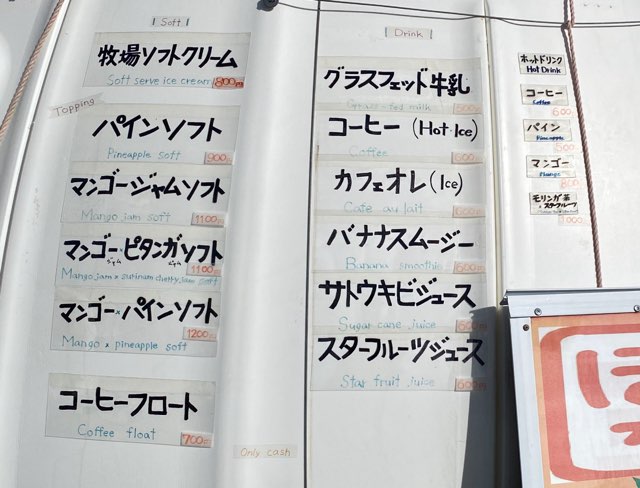 Soft
牧場ソフトクリーム
Soft serve ice cream 800円
Topping
パインソフト
Pineapple soft 900円
マンゴージャムソフト
Mango jam soft 1100円
マンゴー・ピタンガソフト
ジャム ジャム
Mango jam x surinam cherry jam soft 1100円
マンゴー×パインソフト
Mango x pineapple soft 1200円
コーヒーフロート
Coffee float 700円
Only cash
Drink
グラスフェッド牛乳
Grass-fed milk
コーヒー (Hot・Ice)
Coffee 600円
カフェオレ (Ice)
Cafe au lait 600円
バナナスムージー
Banana smoothie 600円
サトウキビジュース
Sugar cane juice 600円
スターフルーツジュース
Star fruit juice 600円
ホットドリンク
Hot Drink
コーヒー
Coffee
600
パイン
Pineapple
マンゴー
Mango
モリンガ茶
スターフルーツ
ほ